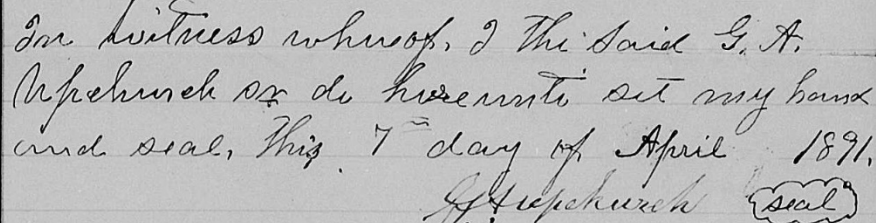 In witness whereof, I the said G. A.
Upchurch sr do hereunto set my hand
and seal, this 7th day of April 1891.
G A Upchurch seal